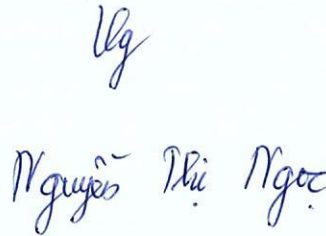 Ng
Nguyễn Thị Ngọc